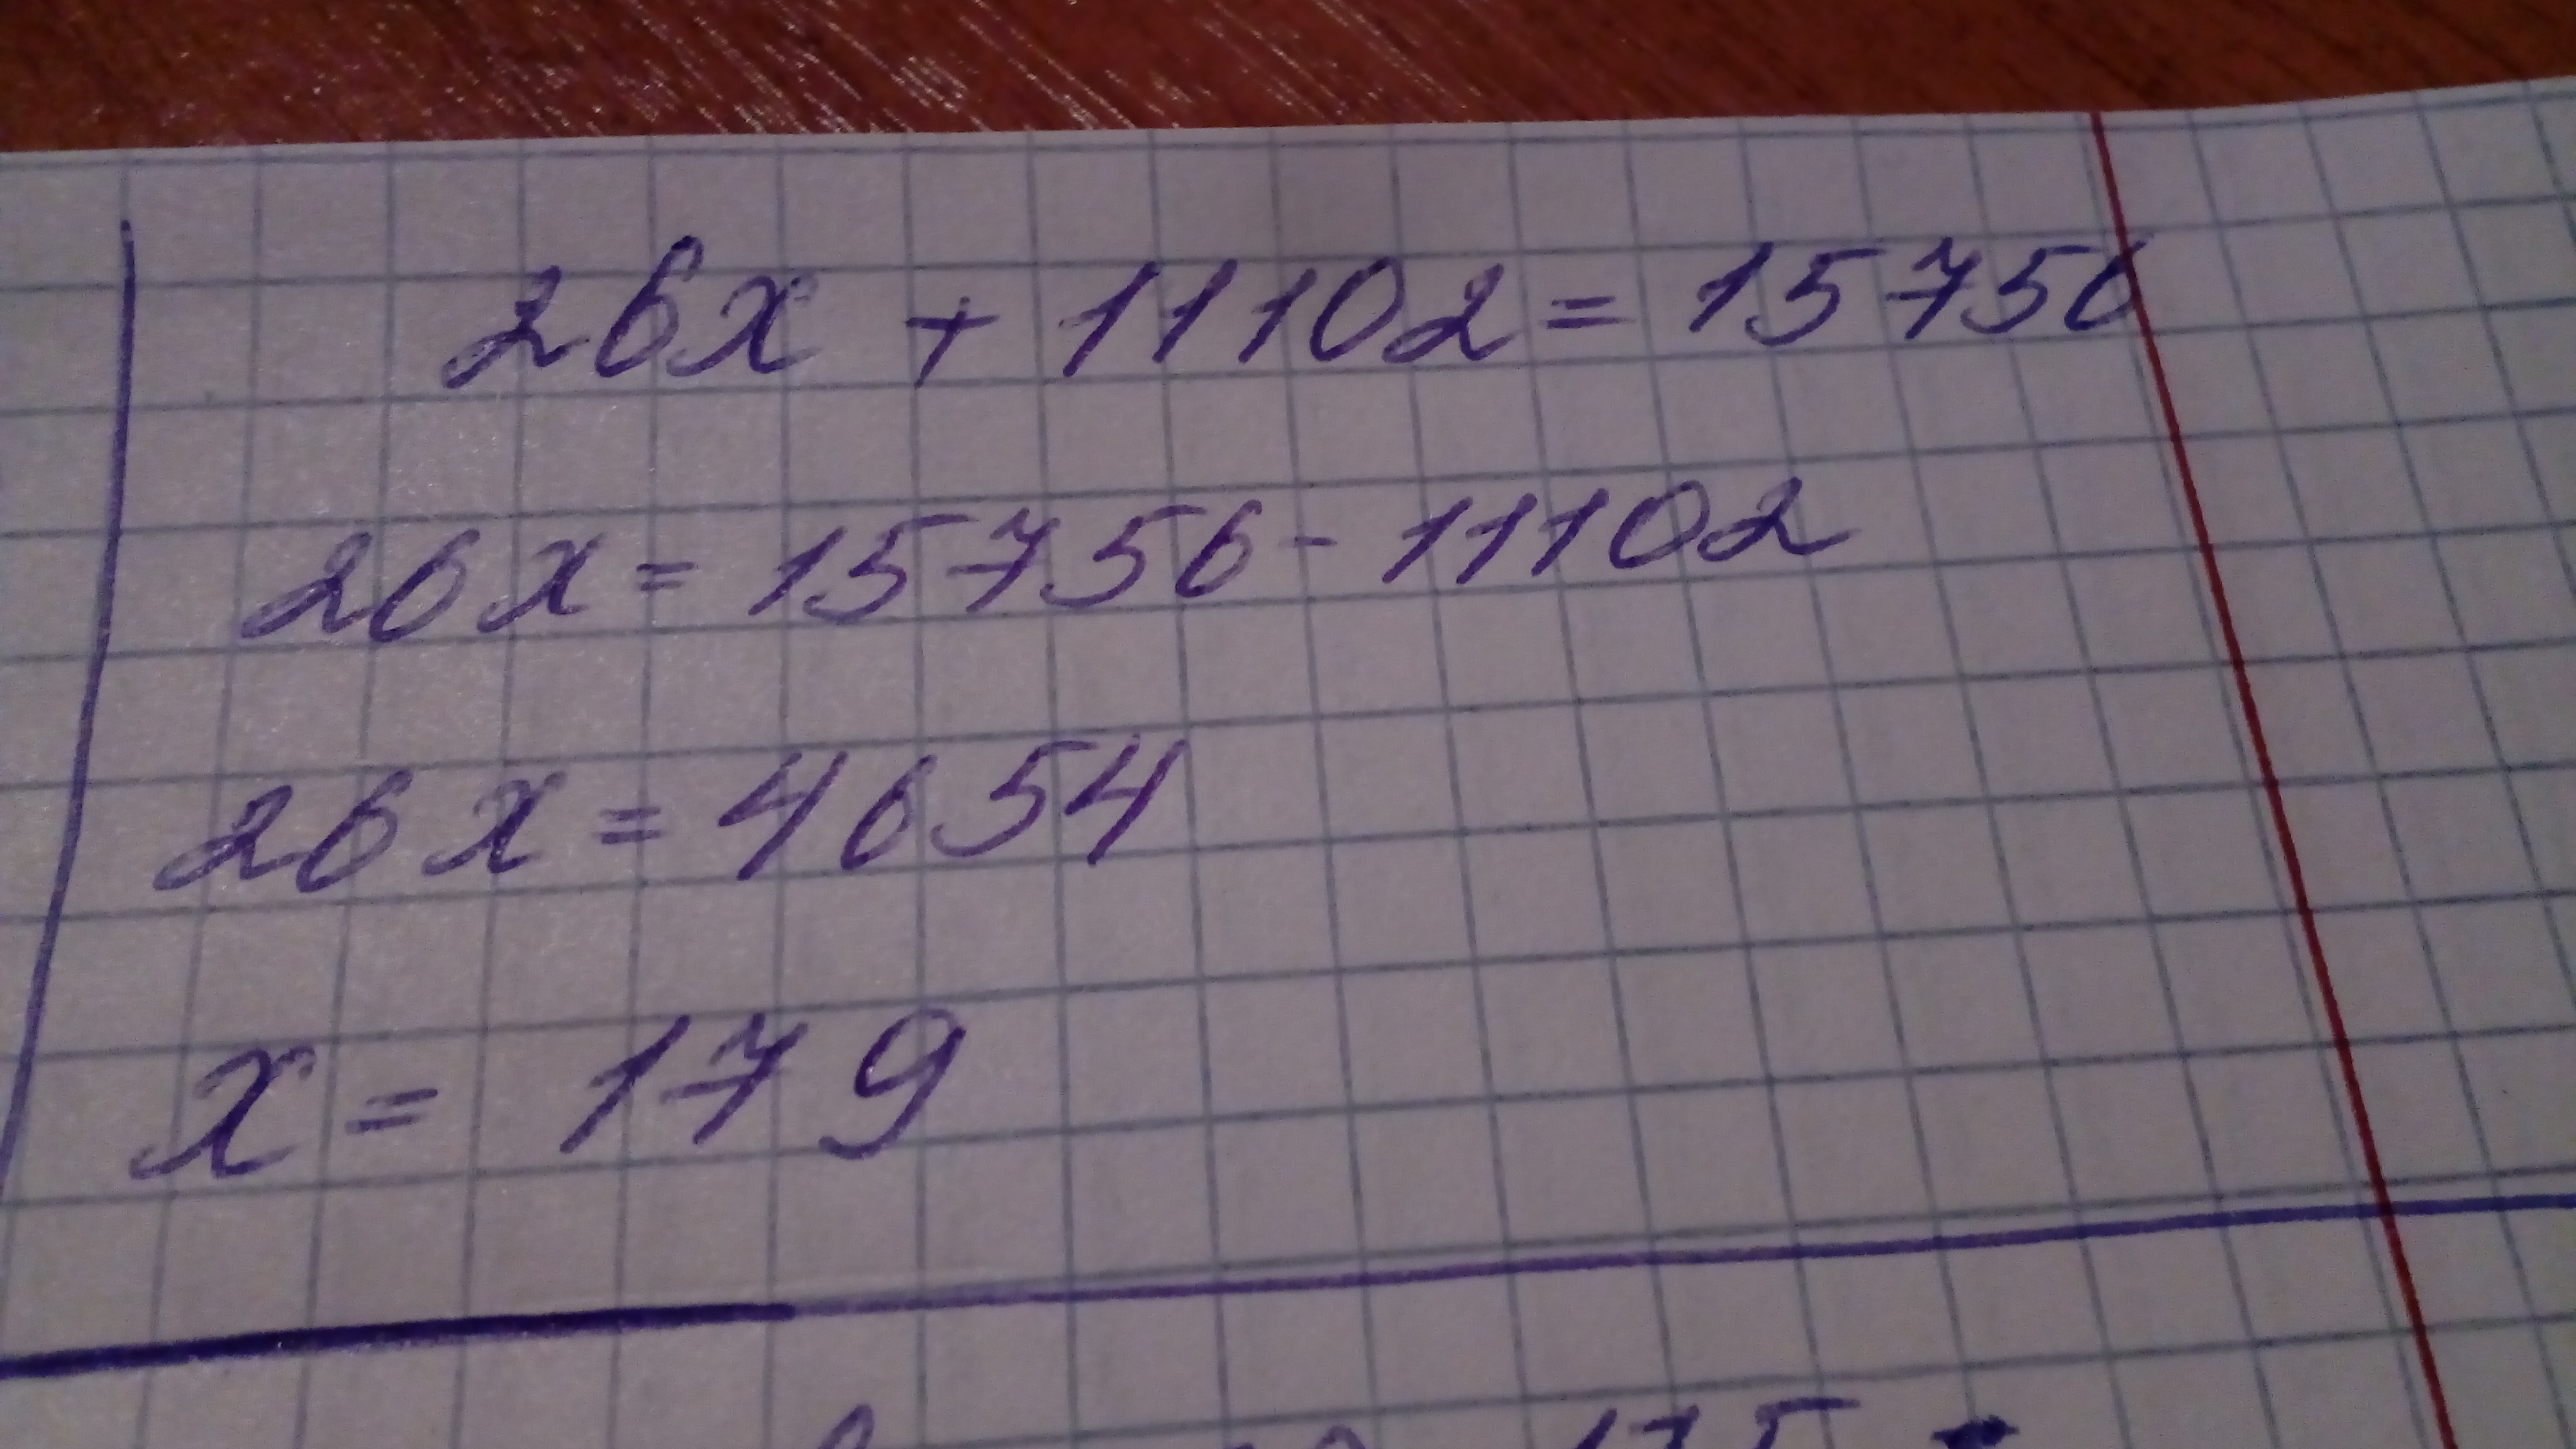 26x + 11102 = 15756
26x = 15756 - 11102
26x = 4654
x = 179